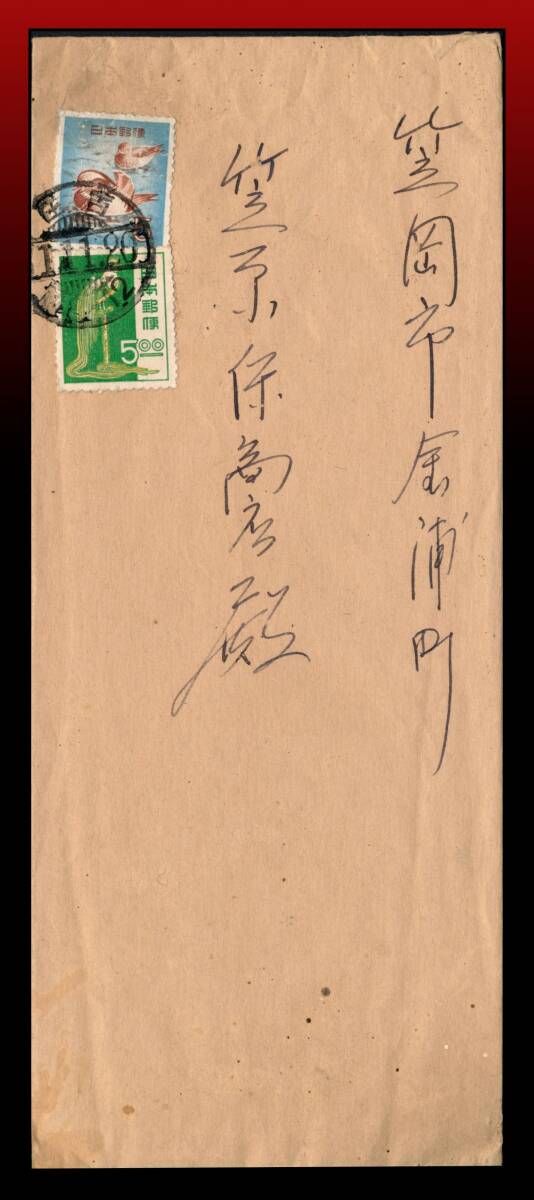 笠岡市金浦町
笠原保商店殿
日本郵便
日本郵便
5.00